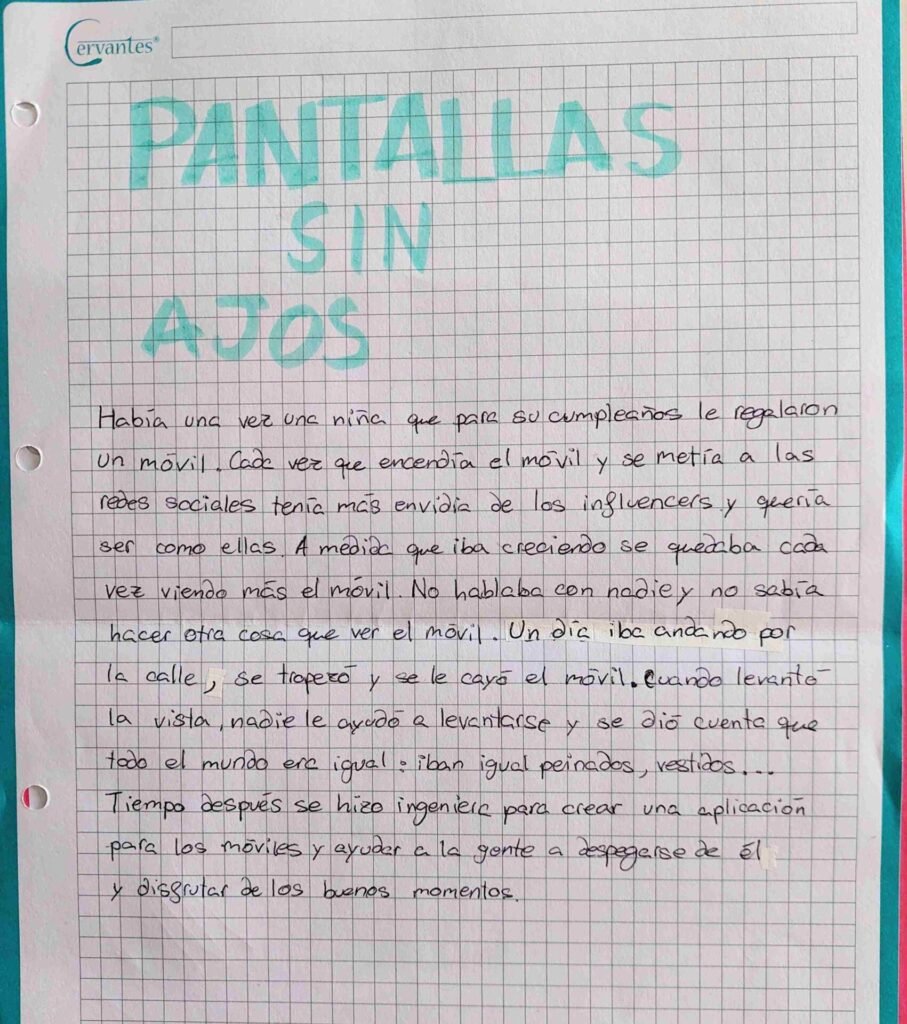 Cervantes®
PANTALLAS
SIN
AJOS
Había una vez una niña que para su cumpleaños le regalaron
un móvil. Cada vez que encendía el móvil y se metía a las
redes sociales tenía más envidia de los influencers y quería
ser como ellas. A medida que iba creciendo se quedaba cada
vez viendo más el móvil. No hablaba con nadie y no sabía
hacer otra cosa que ver el móvil. Un día iba andando por
la calle, se tropezó y se le cayó el móvil. Cuando levantó
la vista, nadie le ayudó a levantarse y se dió cuenta que
todo el mundo era igual: iban igual peinados, vestidos...
Tiempo después se hizo ingeniera para crear una aplicación
para los móviles y ayudar a la gente a despegarse de él
y disfrutar de los buenos momentos.